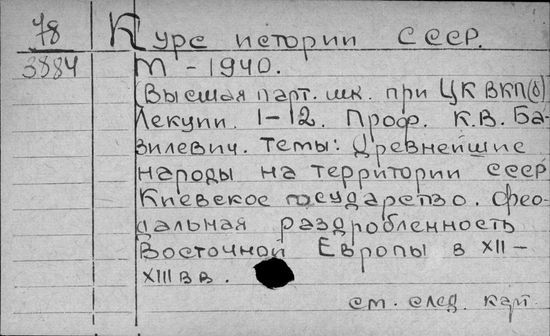 78 Курс истории СССР.
3884 М - 1940.
(Высшая парт. шк. при ЦК ВКП(б)
Лекции. 1-12. Проф. К.В. Ба-
зилевич. Темы: Древнейшие
народы на территории СССР
Киевское государство. Фео-
дальная раздробленность
Восточной Европы в XII-
XIII в в.
см. след. карт.